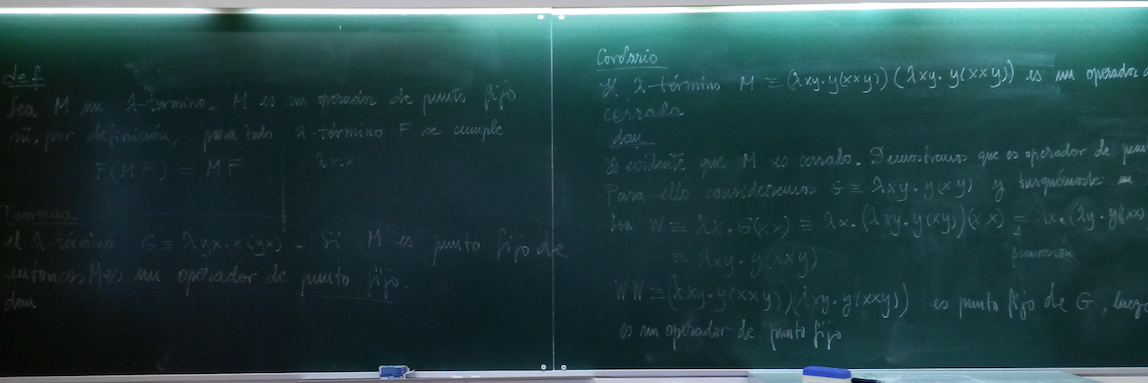 def
Sea M un λ-término. M es un operador de punto fijo
sii, por definición, para todo λ-término F se cumple
F(MF) = MF
λx.x
Teorema
el λ-término G ≡ λyx.x(yx). Si M es punto fijo de
entonces M es un operador de punto fijo.
dem
Corolario
El λ-término M ≡ (λxy.y(xxy))(λxy.y(xxy)) es un operador
cerrado
dem
Es evidente que M es cerrado. Demostramos que es operador de
Para ello consideremos G ≡ λxy.y(xy) y
Sea W ≡ λx.G(xx) ≡ λx.(λxy.y(xy))(xx) = λx.(λy.y(xx
≡ λxy.y(xxy)
WW ≡ (λxy.y(xxy))(λxy.y(xxy)) es punto fijo de G, luego
es un operador de punto fijo